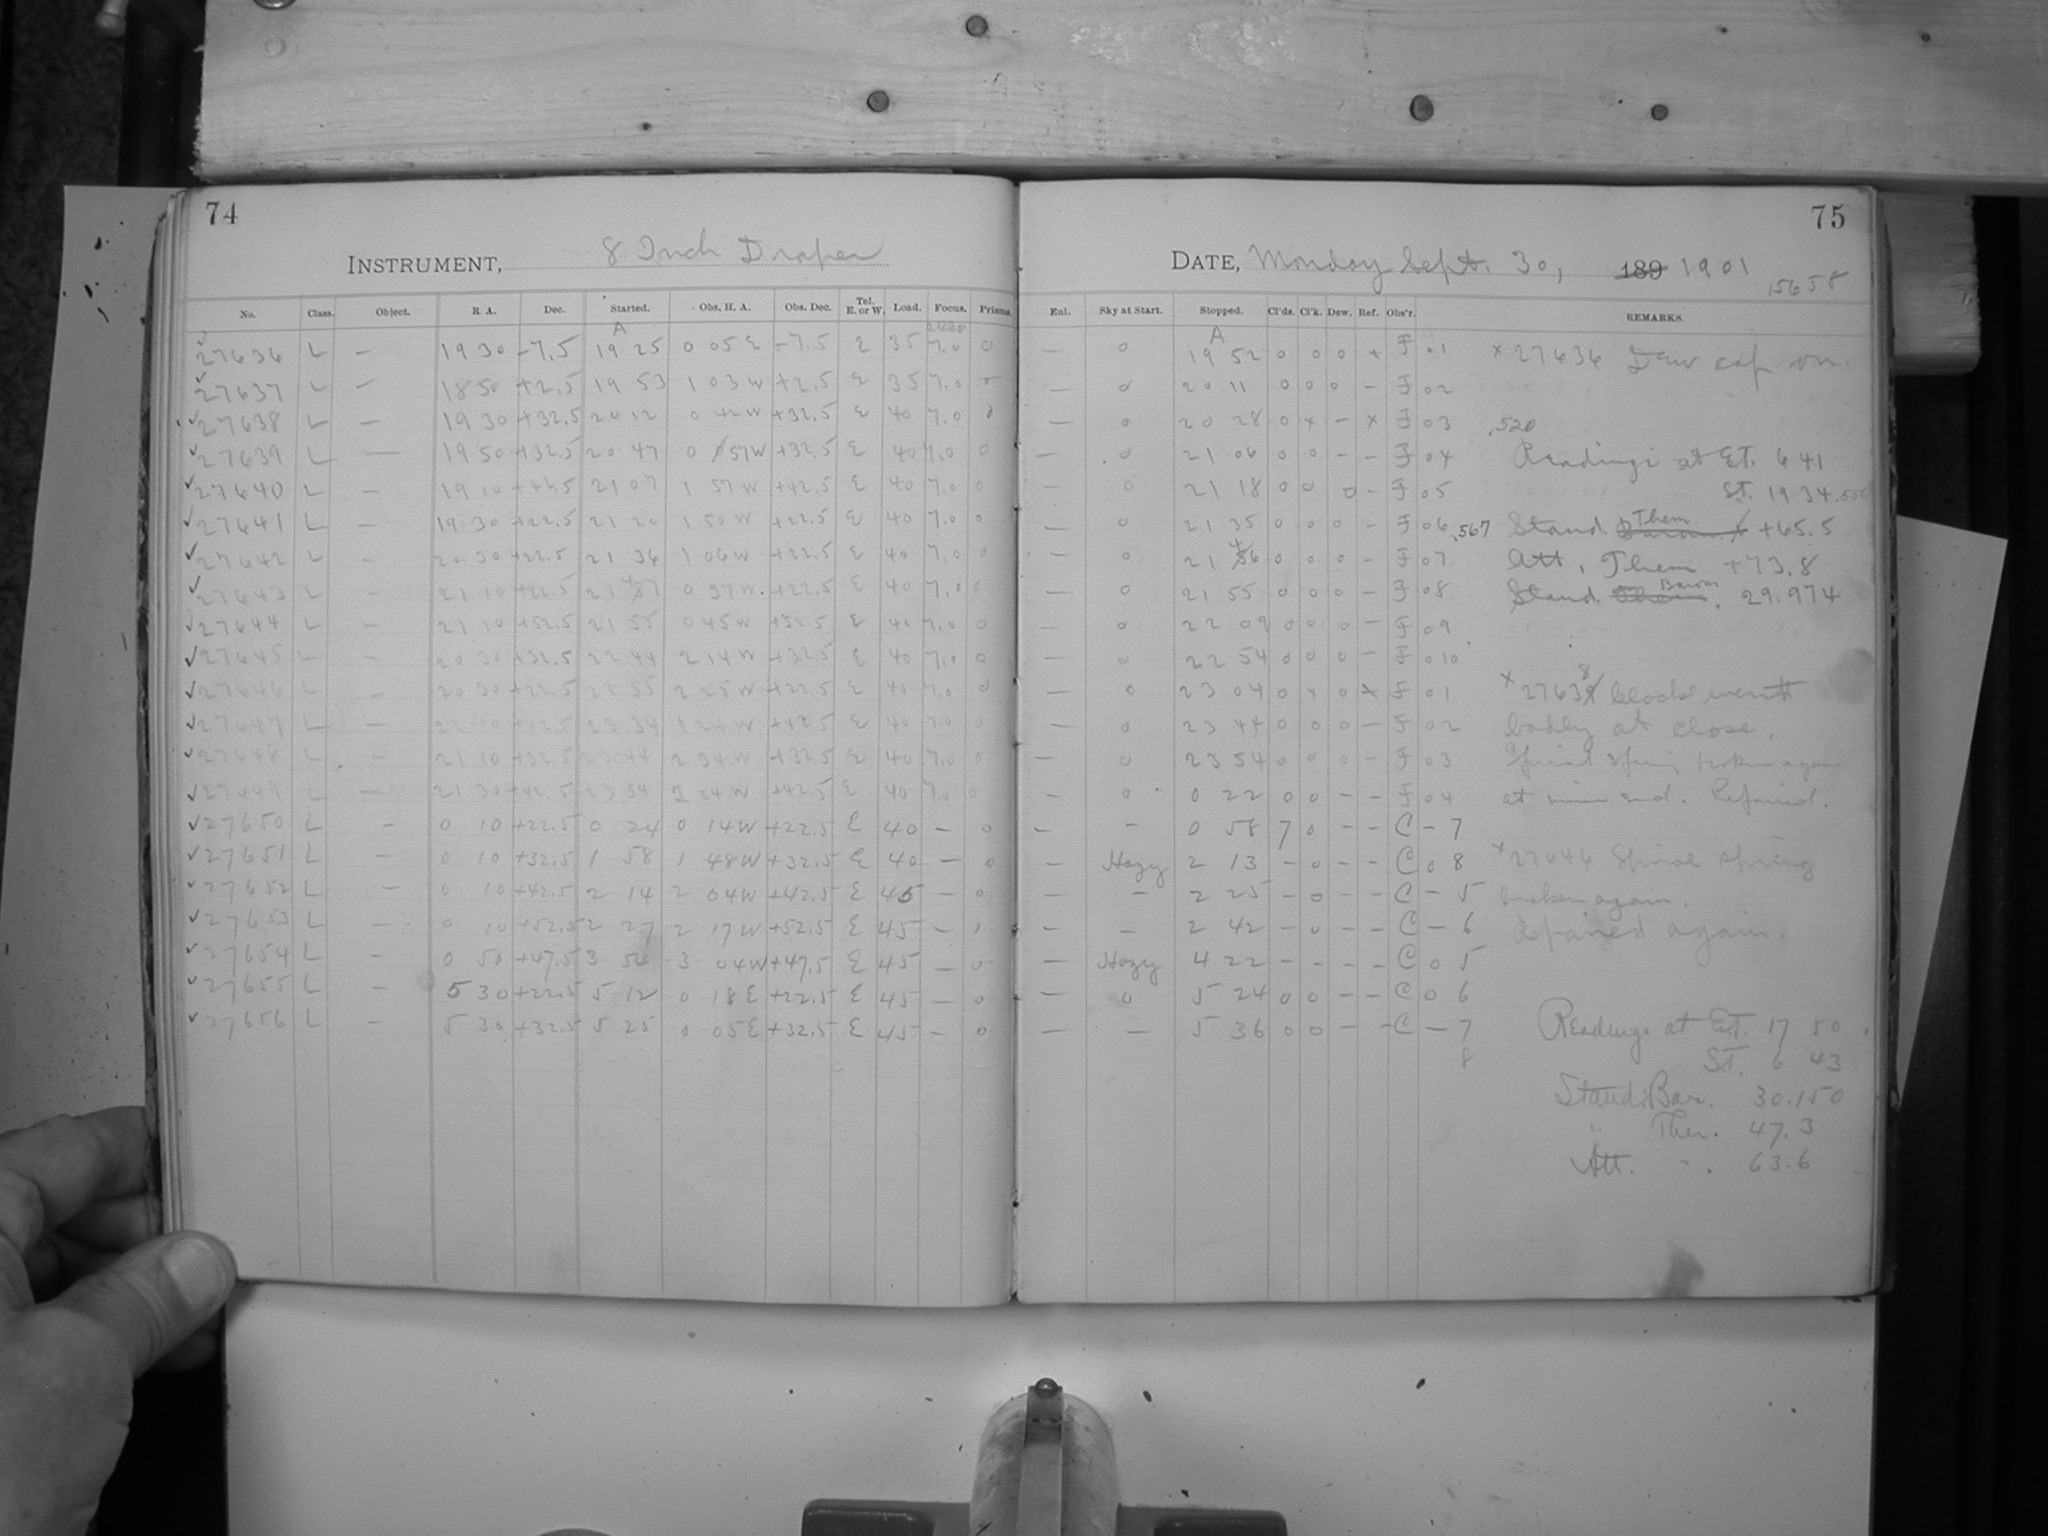 74
INSTRUMENT, 8 Inch Draper
No. Class. Object. R. A. Dec. Started. Obs. H. A. Obs. Dec. Tel. E. or W. Load. Focus. Prisms.
A
✓27636 L — 19 30 -7.5 19 25 0 05 E -7.5 E 35 7.0 0
✓27637 L — 18 50 +2.5 19 53 1 03 W +2.5 E 35 7.0 0
✓27638 L — 19 30 +32.5 20 12 0 42 W +32.5 E 40 7.0 0
✓27639 L — 19 50 +32.5 20 47 0 57 W +32.5 E 40 7.0 0
✓27640 L — 19 10 +42.5 21 07 1 57 W +42.5 E 40 7.0 0
✓27641 L — 19 30 +22.5 21 20 1 50 W +22.5 E 40 7.0 0
✓27642 L — 20 30 +22.5 21 36 1 06 W +22.5 E 40 7.0 0
✓27643 L — 21 10 +22.5 21 47 0 37 W. +22.5 E 40 7.0 0
✓27644 L — 21 10 +52.5 21 55 0 45 W +52.5 E 40 7.0 0
✓27645 L — 20 30 +32.5 22 44 2 14 W +32.5 E 40 7.0 0
✓27646 L — 20 30 +22.5 22 55 2 25 W +22.5 E 40 7.0 0
✓27647 L — 22 10 +42.5 23 34 1 24 W +42.5 E 40 7.0 0
✓27648 L — 21 10 +32.5 23 44 2 34 W +32.5 E 40 7.0 0
✓27649 L — 21 30 +42.5 23 54 2 24 W +42.5 E 40 7.0 0
✓27650 L — 0 10 +22.5 0 24 0 14 W +22.5 E 40 — 0
✓27651 L — 0 10 +32.5 1 58 1 48 W +32.5 E 40 — 0
✓27652 L — 0 10 +42.5 2 14 2 04 W +42.5 E 45 — 0
✓27653 L — 0 10 +52.5 2 27 2 17 W +52.5 E 45 — 0
✓27654 L — 0 50 +47.5 3 54 3 04 W +47.5 E 45 — 0
✓27655 L — 5 30 +22.5 5 12 0 18 E +22.5 E 45 — 0
✓27656 L — 5 30 +32.5 5 25 0 05 E +32.5 E 45 — 0
75
DATE, Monday Sept. 30, 189 1901
15658
Eal. Sky at Start. Stopped. Cl'ds. Cl'k. Dew. Ref. Obs'r. REMARKS.
A
— 0 19 52 0 0 0 x F 01 x 27636 Dew cap on.
— 0 20 11 0 0 0 — F 02
— 0 20 28 0 x — x F 03 .520
— 0 21 06 0 0 — — F 04 Readings at E.T. 6 41
— 0 21 18 0 0 0 — F 05 S.T. 19 34
— 0 21 35 0 0 0 — F 06 .567 Stand. Them. +65.5
— 0 21 46 0 0 0 — F 07 Att. Them +73.8
— 0 21 55 0 0 0 — F 08 Stand. Barom. 29.974
— 0 22 09 0 0 0 — F 09
— 0 22 54 0 0 0 — F 010
— 0 23 04 0 x 0 x F 01 x 27638 clock went
— 0 23 44 0 0 0 — F 02 badly at close.
— 0 23 54 0 0 0 — F 03 Spiral Spring broken again
— 0 0 22 0 0 — — F 04 at end. Repaired.
— — 0 58 7 0 — — C — 7
— Hazy 2 13 — 0 — — C 0 8 x 27646 Spiral Spring
— — 2 25 — 0 — — C — 5 broken again.
— — 2 42 — 0 — — C — 6 Repaired again.
— Hazy 4 22 — — — — C 0 5
— 0 5 24 0 0 — — C 0 6
— — 5 36 0 0 — — C — 7 Readings at E.T. 17 50
8 S.T. 6 43
Stand. Bar. 30.150
" Ther. 47.3
Att. " 63.6